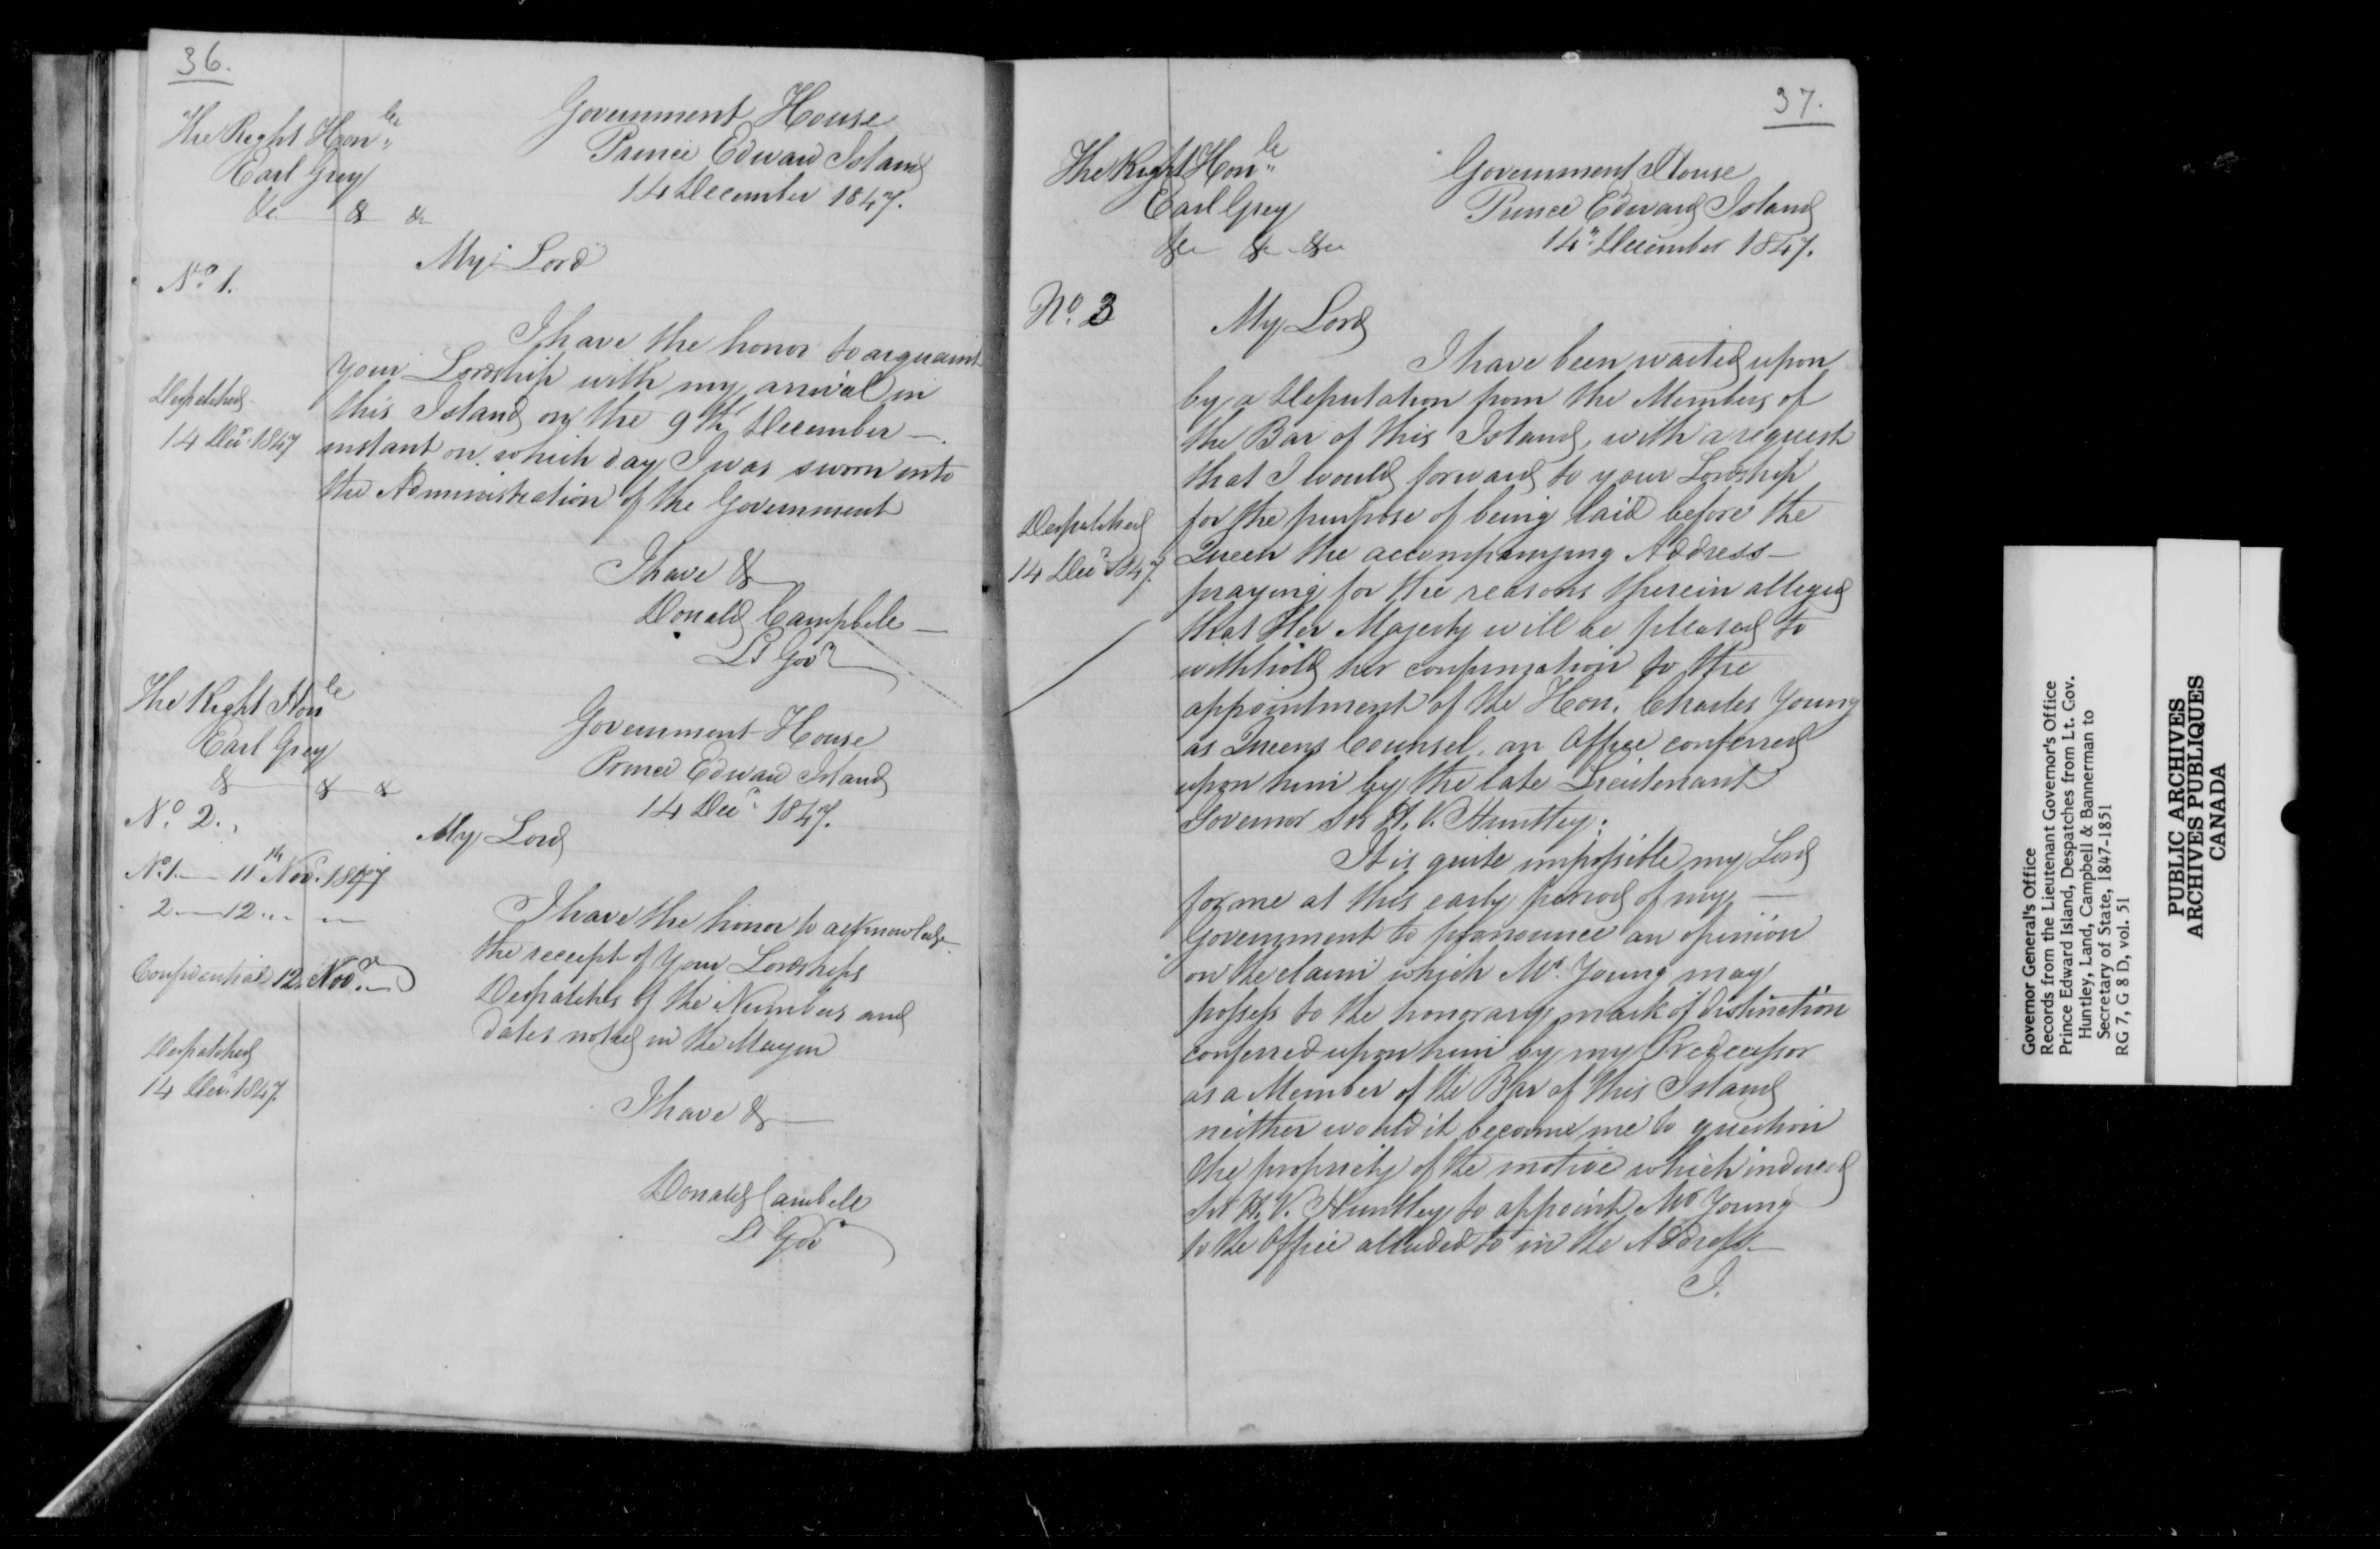 36.
The Right Honble
Earl Grey
&c & &c
Government House
Prince Edward Island
14 December 1847.
My Lord
No. 1.
I have the honor to acquaint
your Lordship with my arrival in
this Island on the 9th December —
instant on which day I was sworn into
the Administration of the Government
Despatched
14 Decr 1847
I have &
Donald Campbell —
Lt Govr
The Right Honble
Earl Grey
& & &
Government House
Prince Edward Island
14 Decr 1847.
No. 2.
My Lord
No. 1 — 11th Novr. 1847
2 — 12 " "
Confidential 12 Novr. —
I have the honor to acknowledge
the receipt of your Lordships
Despatches of the Numbers and
dates noted in the Margin
Despatched
14 Decr 1847.
I have & —
Donald Cambell
Lt Govr
37.
The Right Honble
Earl Grey
&c &c &c
Government House
Prince Edward Island
14" December 1847.
No. 3
My Lord
I have been waited upon
by a Deputation from the Members of
the Bar of this Island, with a request
that I would forward to your Lordship
for the purpose of being laid before the
Queen the accompanying Address —
praying for the reasons therein alleged
that Her Majesty will be pleased to
withhold her confirmation to the
appointment of the Hon. Charles Young
as Queens Counsel, an Office conferred
upon him by the late Lieutenant
Governor Sir H. V. Huntley:
Despatched
14 Decr 1847.
It is quite impossible my Lord
for me at this early period of my —
Government to pronounce an opinion
on the claim which Mr. Young may
possess to the honorary mark of distinction
conferred upon him by my Predecessor
as a Member of the Bar of this Island
neither would it become me to question
the propriety of the motive which induced
Sir H. V. Huntley to appoint Mr Young
to the Office alluded to in the Address —
I.
Governor General's Office
Records from the Lieutenant Governor's Office
Prince Edward Island, Despatches from Lt. Gov.
Huntley, Land, Campbell & Bannerman to
Secretary of State, 1847-1851
RG 7, G 8 D, vol. 51
PUBLIC ARCHIVES
ARCHIVES PUBLIQUES
CANADA